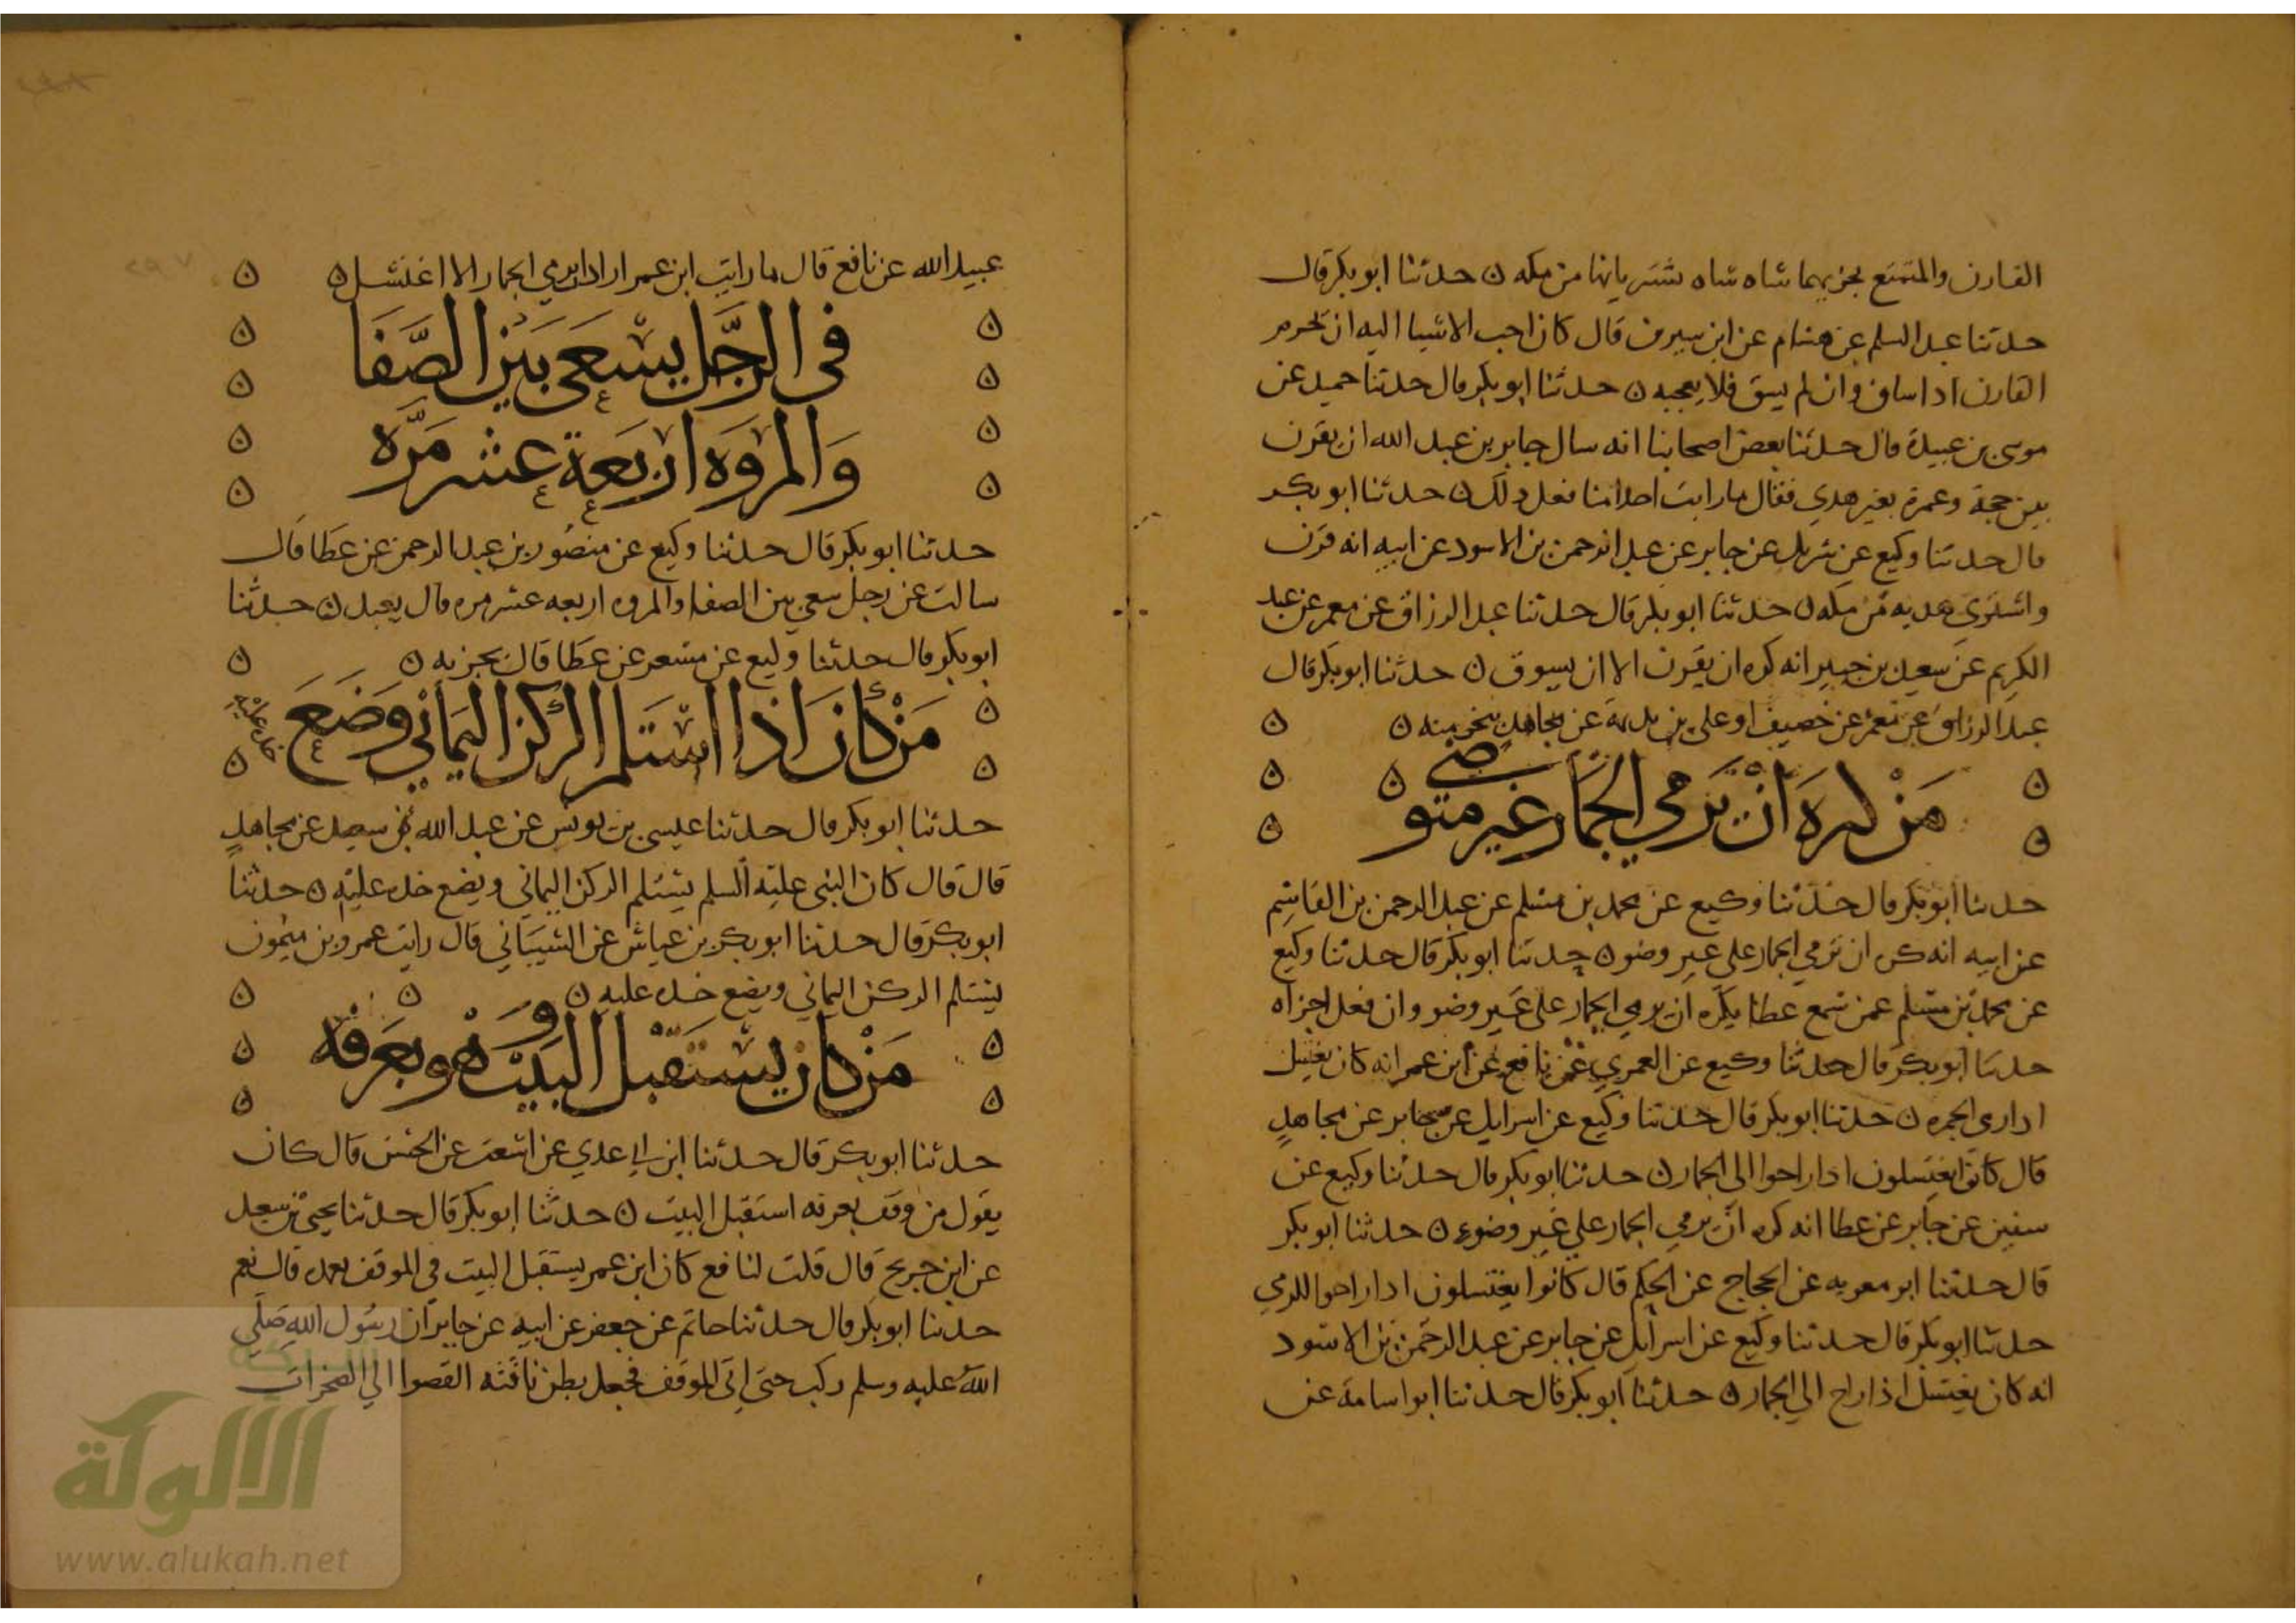 القارن والمتمتع يجزيهما شاه شاه يشتريانها من مكه ن حدثنا ابو بكر قال
حدثنا عبد السلم عن هشام عن ابن سيرين قال كان احب الاشيا اليه ان يحرم
القارن اذا ساق وان لم يسق فلا يعجبه ن حدثنا ابو بكر قال حدثنا حميد عن
موسى بن عبيدة قال حدثنا بعض اصحابنا انه سال جابر بن عبد الله ان يقرن
بين حجة وعمرة بغير هدي فقال ما رايت احدا منا فعل ذلك ن حدثنا ابو بكر
قال حدثنا وكيع عن شريك عن جابر عن عبد الرحمن بن الاسود عن ابيه انه قرن
واشترى هديه من مكه ن حدثنا ابو بكر قال حدثنا عبد الرزاق عن معمر عن عبد
الكريم عن سعيد بن جبير انه كره ان يقرن الا ان يسوق ن حدثنا ابو بكر قال
عبد الرزاق عن معمر عن خصيف او علي بن بذيمة عن مجاهد بنحو منه ن
من كره ان يرمي الجمار غير متوضي
حدثنا ابو بكر قال حدثنا وكيع عن محمد بن مسلم عن عبد الرحمن بن القاسم
عن ابيه انه كره ان ترمي الجمار على غير وضو ن حدثنا ابو بكر قال حدثنا وكيع
عن محمد بن مسلم عمن سمع عطا يكره ان يرمي الجمار على غير وضو وان فعل اجزاه
حدثنا ابو بكر قال حدثنا وكيع عن العمري عن نافع عن ابن عمر انه كان يغتسل
اذا رمى الجمره ن حدثنا ابو بكر قال حدثنا وكيع عن اسرايل عن جابر عن مجاهد
قال كانوا يغتسلون اذا راحوا الى الجمار ن حدثنا ابو بكر قال حدثنا وكيع عن
سفين عن جابر عن عطا انه كره ان يرمي الجمار على غير وضوء ن حدثنا ابو بكر
قال حدثنا ابو معويه عن الحجاج عن الحكم قال كانوا يغتسلون اذا راحوا للرمي
حدثنا ابو بكر قال حدثنا وكيع عن اسرايل عن جابر عن عبد الرحمن بن الاسود
انه كان يغتسل اذا راح الى الجمار ن حدثنا ابو بكر قال حدثنا ابو اسامة عن
عبيد الله عن نافع قال ما رايت ابن عمر اراد ان يرمي الجمار الا اغتسل ن
في الرجل يسعى بين الصفا
والمروه اربعة عشر مره
حدثنا ابو بكر قال حدثنا وكيع عن منصور بن عبد الرحمن عن عطا قال
سالت عن رجل سعى بين الصفا والمروه اربعه عشر مره قال يعيد ن حدثنا
ابو بكر قال حدثنا وكيع عن مسعر عن عطا قال يجزيه ن
من كان اذا استلم الركن اليماني وضع خده عليه
حدثنا ابو بكر قال حدثنا عيسى بن يونس عن عبد الله بن سعيد عن مجاهد
قال قال كان النبي عليه السلم يستلم الركن اليماني ويضع خده عليه ن حدثنا
ابو بكر قال حدثنا ابو بكر بن عياش عن الشيباني قال رايت عمرو بن ميمون
يستلم الركن اليماني ويضع خده عليه ن
من كان يستقبل البيت وهو بعرفه
حدثنا ابو بكر قال حدثنا ابن ابي عدي عن اشعث عن الحسن قال كان
يقول من وقف بعرفه استقبل البيت ن حدثنا ابو بكر قال حدثنا يحيى بن سعيد
عن ابن جريج قال قلت لنافع كان ابن عمر يستقبل البيت في الموقف بعده قال نعم
حدثنا ابو بكر قال حدثنا حاتم عن جعفر عن ابيه عن جابر ان رسول الله صلى
الله عليه وسلم ركب حتى اتى الموقف فجعل بطن ناقته القصوا الى الصخرات
الألوكة
www.alukah.net